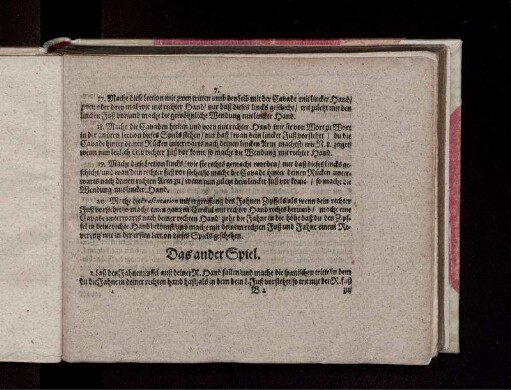 7.
17. Mache diese lection mit zween tritten umb den leib mit der Cavade mit lincker Hand/
zween oder drey mal wie mit rechter Hand/ nur daß dieses lincks geschicht/ tritt zuletzt mit den
lincken Fuß vor und mache die gewöhnliche Wendung mit lincker Hand.
18. Mache die Cavaden hinten und vorn mit rechter Hand wie sie von Wort zu Wort
in der andern lection dieses Spiels stehet/ nur daß/ wan dein lincker Fuß vorstehet/ du die
Cavade hinter deinen Rücken unterwarts nach deinen lincken Arm machest
wenn nun der rechte Fuß vor kömt/ so mache die Wendung mit rechter Hand.
19. Mache diese lection lincks/ wie sie rechts gemacht worden/ nur daß dieses lincks ge-
schicht/ und wan dein rechter Fuß vorstehet/ so mache die Cavade hinter deinen Rücken unter-
warts nach deinen rechten Arm zu/ wenn nun zuletzt dein lincker Fuß vor kömt/ so mache die
Wendung mit lincker Hand.
20. Mache die præsentation mit ergreiffung des Fahnen Zipffels/ als wenn dein rechter
Fuß vorstehet/ so mache einen gantzen Circkul mit rechter Hand rechts herumb/ mache eine
Cavade unterwarts nach deiner rechten Hand ziehe die Fahne in die höhe daß du den Zipf-
fel in deine rechte Hand bekomst und mache mit deinem rechten Fuß und Fahne einem Re-
verentz wie in der ersten lection dieses Spiels geschehen.
Das ander Spiel.
1. laß den Fahnenzipffel auß deiner R. Hand fallen und mache die spanischen tritte in dem
du die Fahne in deiner rechten hand hast/ als in dem dein l. Fuß vorstehet/ so tritt mit der R. fuß
B 2